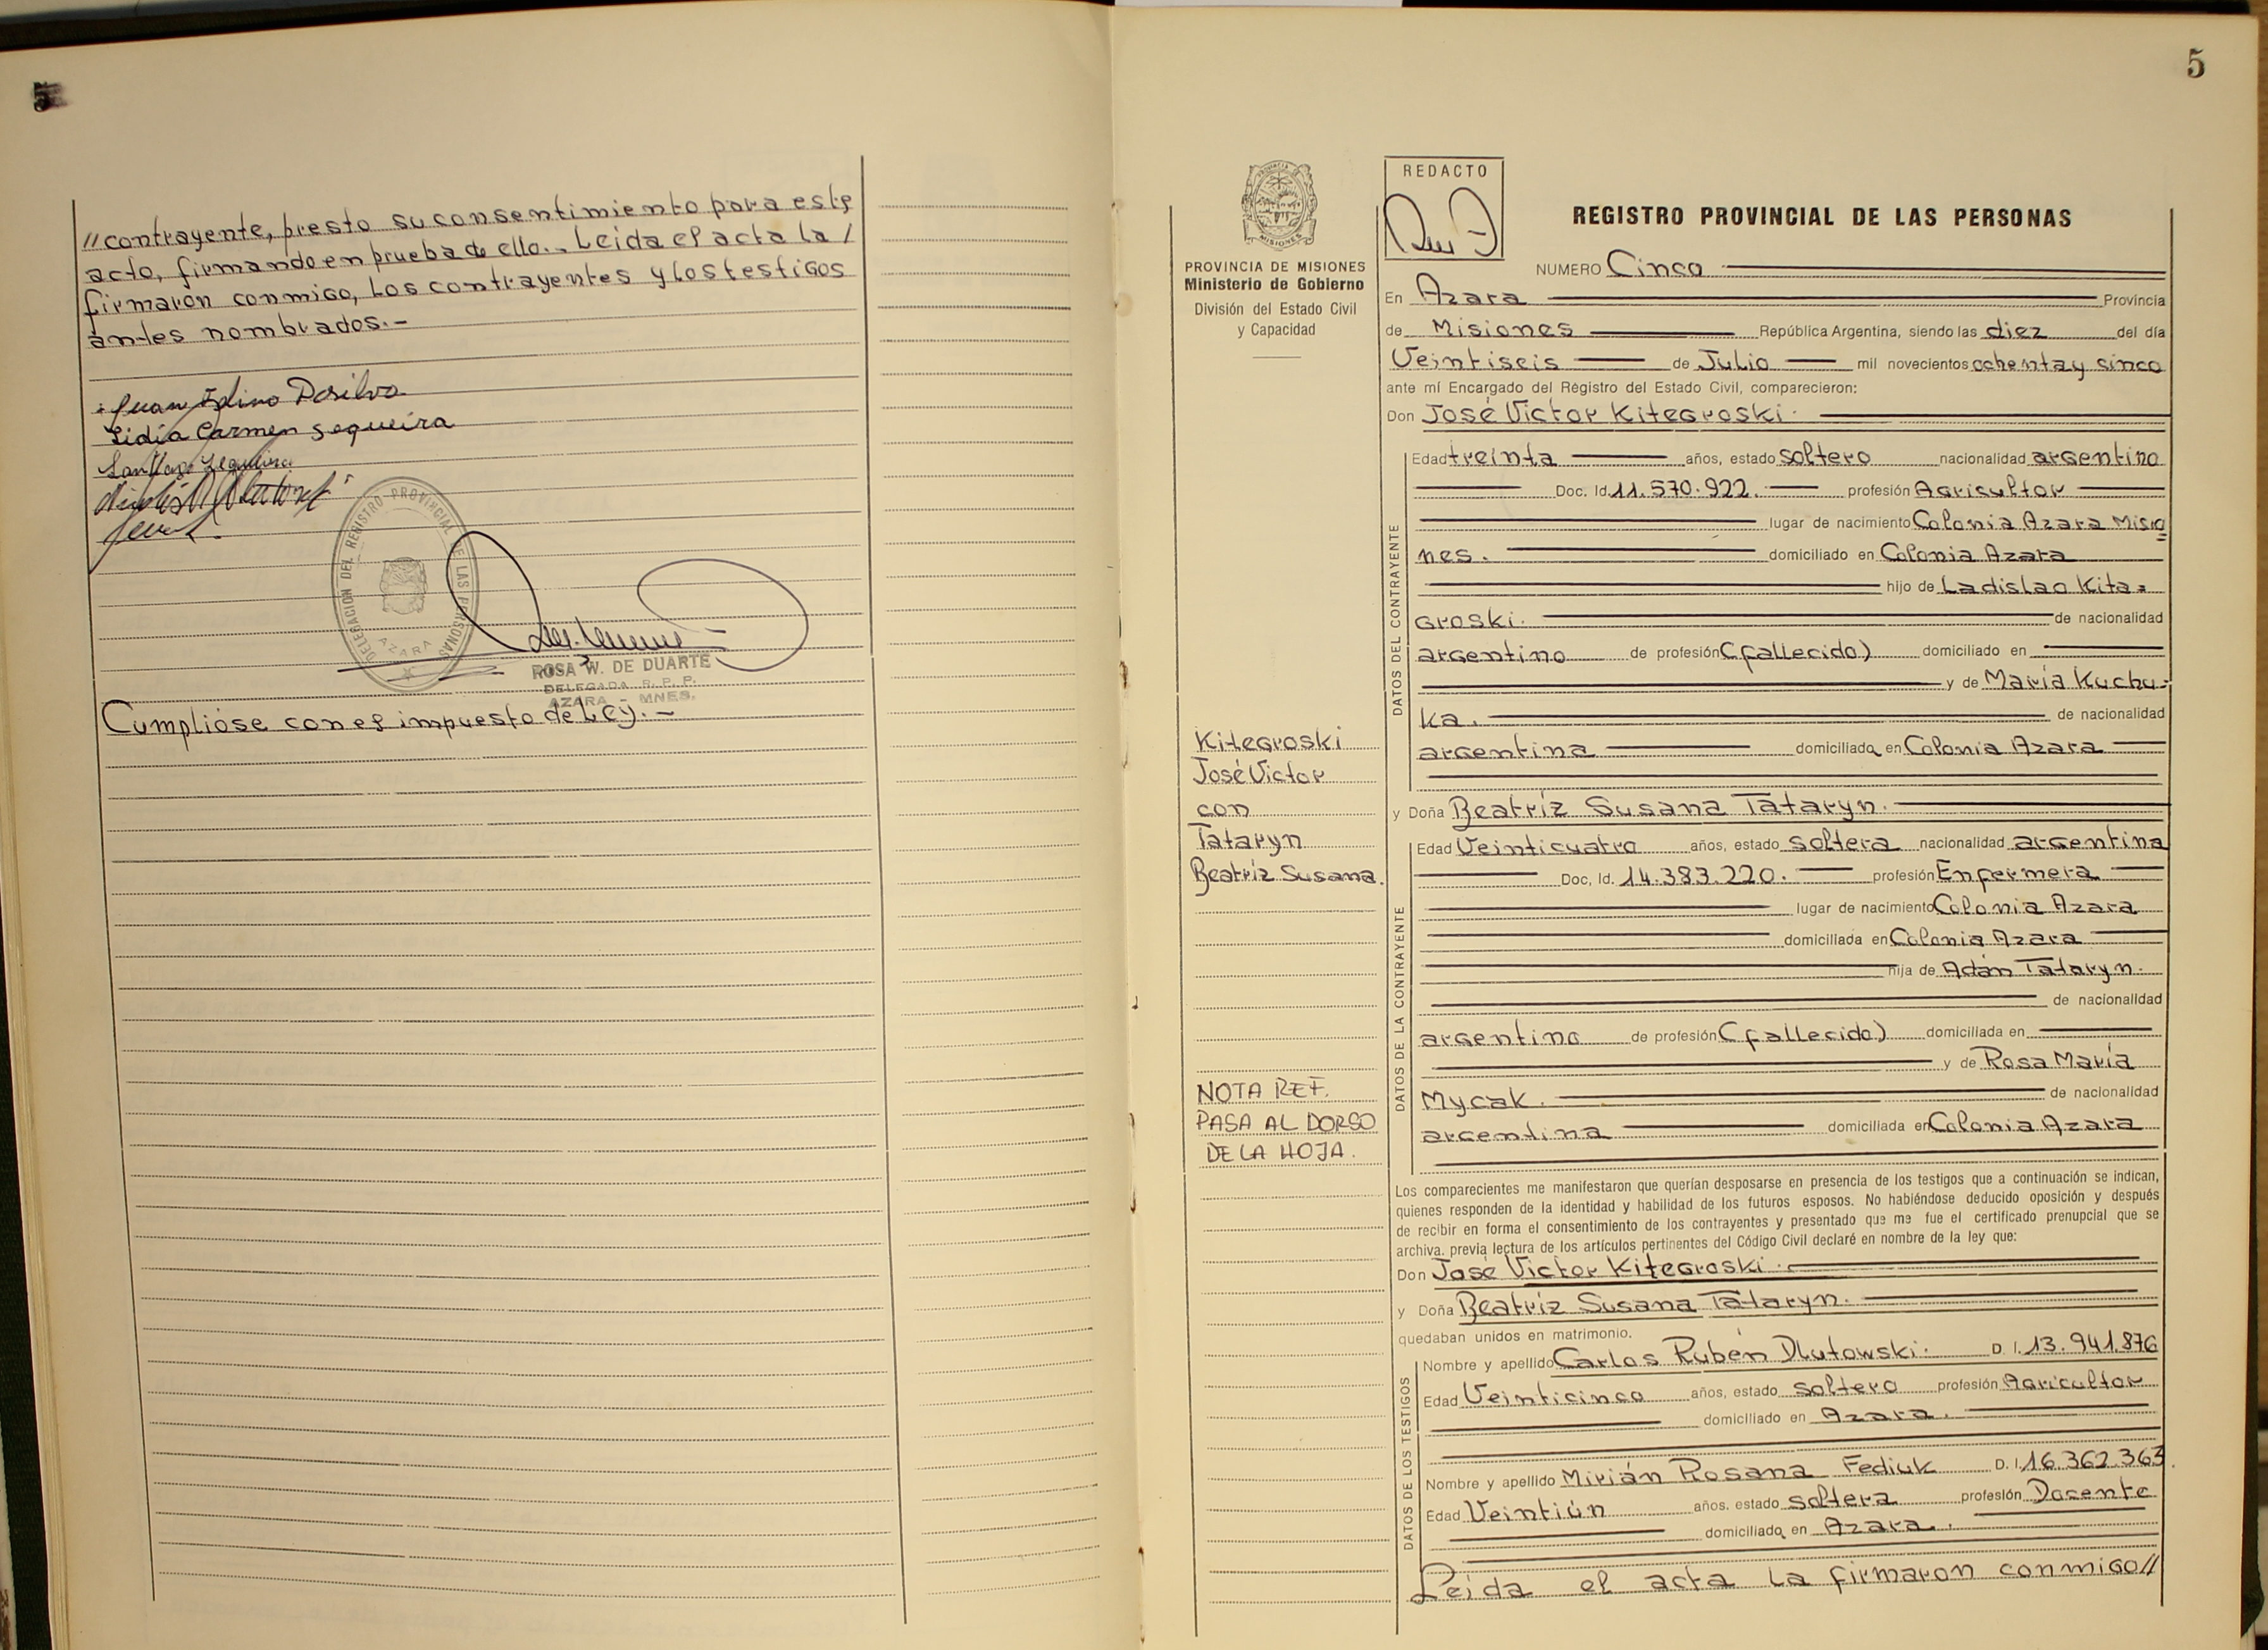 5
// contrayente, presto su consentimiento para este
acto, firmando en prueba de ello.- Leida el acta la /
firmaron conmigo, los contrayentes y los testigos
antes nombrados.-
Juan Dasilva
Lidia Carmen Sequeira
Santiago Sequeira
DELEGACION DEL REGISTRO PROVINCIAL DE LAS PERSONAS
AZARA
ROSA W. DE DUARTE
DELEGADA R. P. P.
AZARA - MNES.
Cumplióse con el impuesto de Ley.-
5
PROVINCIA DE MISIONES
Ministerio de Gobierno
División del Estado Civil
y Capacidad
Kitegroski
José Victor
con
Tataryn
Beatríz Susana.
NOTA REF.
PASA AL DORSO
DE LA HOJA.
REDACTO
REGISTRO PROVINCIAL DE LAS PERSONAS
NUMERO Cinco
En Azara Provincia
de Misiones República Argentina, siendo las diez del día
Veintiseis de Julio mil novecientos ochenta y cinco
ante mí Encargado del Registro del Estado Civil, comparecieron:
Don José Victor Kitegroski.
DATOS DEL CONTRAYENTE
Edad treinta años, estado soltero nacionalidad argentino
Doc. Id. 11.570.922. profesión Agricultor
lugar de nacimiento Colonia Azara Misio
nes. domiciliado en Colonia Azara
hijo de Ladislao Kita=
groski. de nacionalidad
argentino de profesión (fallecido) domiciliado en
y de María Kuchu-
ka. de nacionalidad
argentina domiciliada en Colonia Azara
y Doña Beatríz Susana Tataryn.
DATOS DE LA CONTRAYENTE
Edad Veinticuatro años, estado soltera nacionalidad argentina
Doc, Id. 14.383.220. profesión Enfermera
lugar de nacimiento Colonia Azara
domiciliada en Colonia Azara
hija de Adán Tataryn.
de nacionalidad
argentino de profesión (fallecido) domiciliada en
y de Rosa María
Mycak. de nacionalidad
argentina domiciliada en Colonia Azara
Los comparecientes me manifestaron que querían desposarse en presencia de los testigos que a continuación se indican,
quienes responden de la identidad y habilidad de los futuros esposos. No habiéndose deducido oposición y después
de recibir en forma el consentimiento de los contrayentes y presentado que me fue el certificado prenupcial que se
archiva. previa lectura de los artículos pertinentes del Código Civil declaré en nombre de la ley que:
Don José Victor Kitegroski.
y Doña Beatríz Susana Tataryn.
quedaban unidos en matrimonio.
DATOS DE LOS TESTIGOS
Nombre y apellido Carlos Rubén Dlutowski. D. I. 13.941.876
Edad Veinticinco años, estado soltero profesión Agricultor
domiciliado en Azara.
Nombre y apellido Mirián Rosana Fediuk D. I. 16.362.363.
Edad Veintiún años. estado soltera profesión Docente
domiciliada en Azara.
Leida el acta la firmaron conmigo//